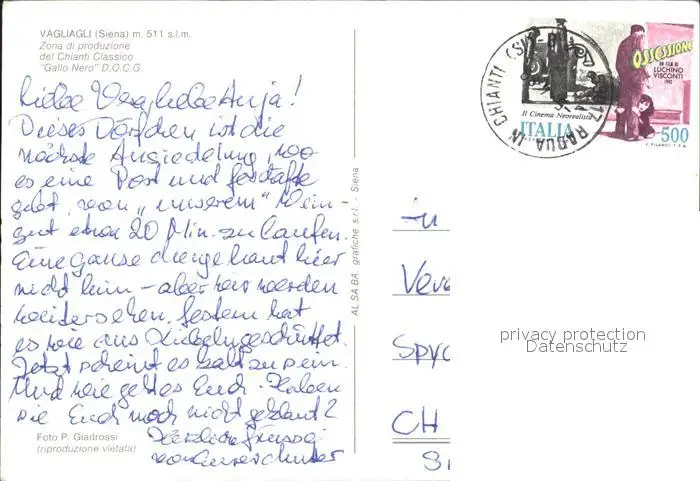 VAGLIAGLI (Siena) m. 511 s.l.m.
Zona di produzione
del Chianti Classico
"Gallo Nero" D.O.C.G.
Liebe Vera, liebe Anja!
Dieses Dörfchen ist die
nächste Ansiedelung, wo
es eine Post und Geschäfte
gibt, von „unserem" Wein-
gut etwa 20 Min. zu laufen.
Eine Ganse haut hier
nicht hin – aber wir werden
weitersehen. Gestern hat
es wie aus Kübeln geschüttet.
Jetzt scheint es bald zu sein.
Und wie geht es Euch. Haben
sie Euch noch nicht geklaut?
Herzliche
von
Foto P. Giadrossi
(riproduzione vietata)
AL.SA.BA. grafiche s.r.l. - Siena
RADDA IN CHIANTI (SI)
Il Cinema Neorealista
ITALIA
OSSESSIONE
UN FILM DI
LUCHINO
VISCONTI
500
in
CH
privacy protection
Datenschutz